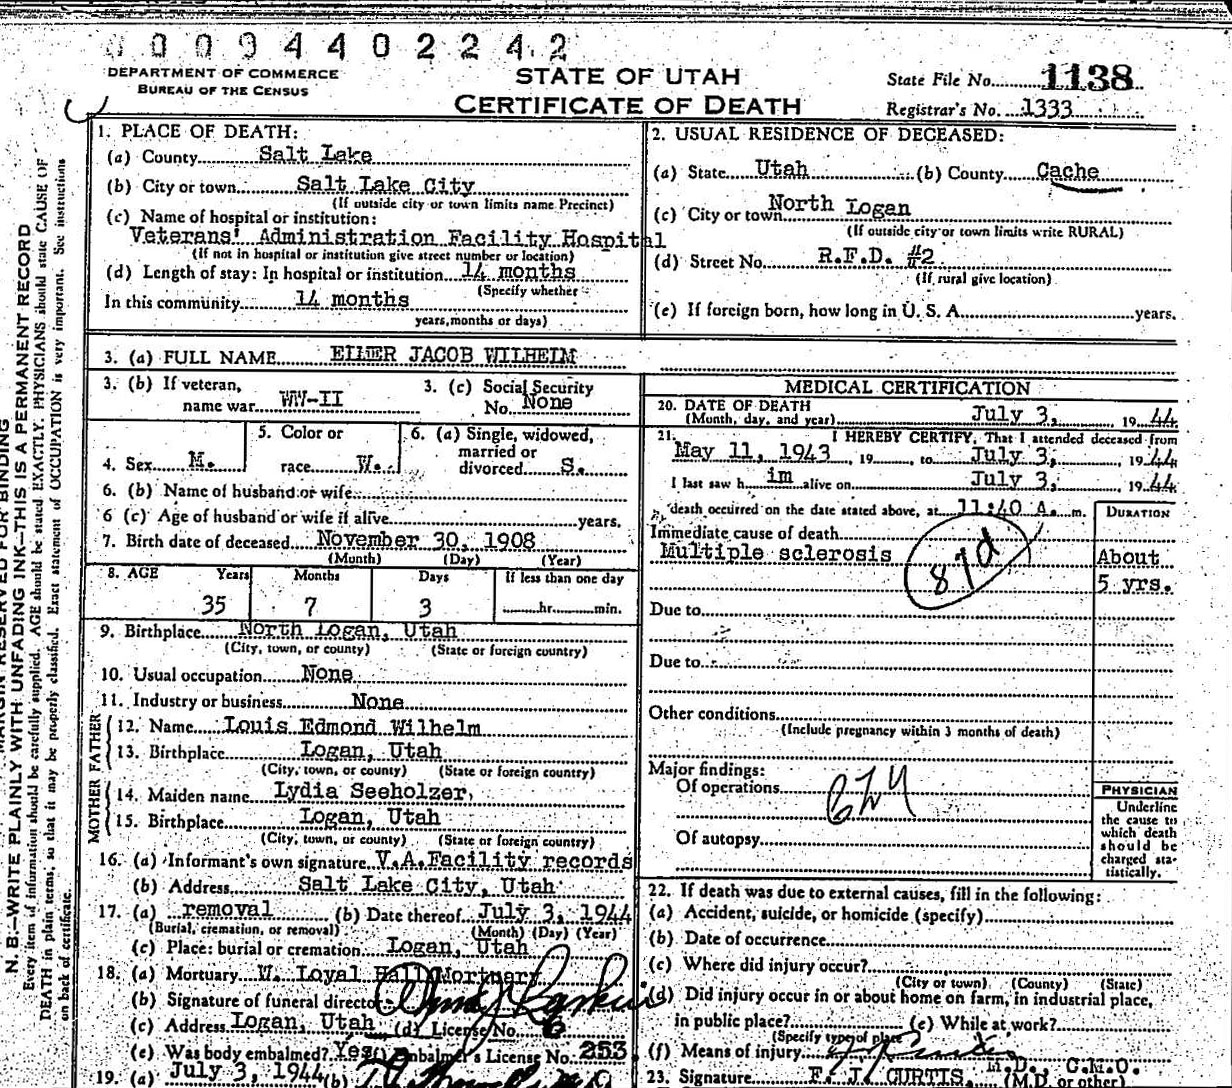 0009440224.2
DEPARTMENT OF COMMERCE
BUREAU OF THE CENSUS
STATE OF UTAH
CERTIFICATE OF DEATH
State File No. 1138
Registrar's No. 1333
MARGIN RESERVED FOR BINDING
N. B.—WRITE PLAINLY WITH UNFADING INK—THIS IS A PERMANENT RECORD
Every item of information should be carefully supplied. AGE should be stated EXACTLY. PHYSICIANS should state CAUSE OF
DEATH in plain terms, so that it may be properly classified. Exact statement of OCCUPATION is very important. See instructions
on back of certificate.
1. PLACE OF DEATH:
(a) County Salt Lake
(b) City or town Salt Lake City
(If outside city or town limits name Precinct)
(c) Name of hospital or institution:
Veterans' Administration Facility Hospital
(If not in hospital or institution give street number or location)
(d) Length of stay: In hospital or institution 14 months
(Specify whether
In this community 14 months
years, months or days)
2. USUAL RESIDENCE OF DECEASED:
(a) State Utah (b) County Cache
(c) City or town North Logan
(If outside city or town limits write RURAL)
(d) Street No. R.F.D. #2
(If rural give location)
(e) If foreign born, how long in U. S. A. years.
3. (a) FULL NAME ELMER JACOB WILHELM
3. (b) If veteran,
name war WW-II
3. (c) Social Security
No. None
4. Sex M.
5. Color or
race W.
6. (a) Single, widowed,
married or
divorced S.
6. (b) Name of husband or wife
6 (c) Age of husband or wife if alive years.
7. Birth date of deceased November 30, 1908
(Month) (Day) (Year)
8. AGE Years Months Days If less than one day
35 7 3 hr. min.
9. Birthplace North Logan, Utah
(City, town, or county) (State or foreign country)
10. Usual occupation None
11. Industry or business None
FATHER
12. Name Louis Edmond Wilhelm
13. Birthplace Logan, Utah
(City, town, or county) (State or foreign country)
MOTHER
14. Maiden name Lydia Seeholzer
15. Birthplace Logan, Utah
(City, town, or county) (State or foreign country)
16. (a) Informant's own signature V.A.Facility records
(b) Address Salt Lake City, Utah
17. (a) removal (b) Date thereof July 3, 1944
(Burial, cremation, or removal) (Month) (Day) (Year)
(c) Place: burial or cremation Logan, Utah
18. (a) Mortuary W. Loyal Hall Mortuary
(b) Signature of funeral director
(c) Address Logan, Utah (d) License No. 6
(e) Was body embalmed? Yes (f) Embalmer's License No. 253
19. (a) July 3, 1944 (b)
MEDICAL CERTIFICATION
20. DATE OF DEATH
(Month, day, and year) July 3, 1944
21. I HEREBY CERTIFY, That I attended deceased from
May 11, 1943, 19 to July 3, 1944
I last saw him alive on July 3, 1944
death occurred on the date stated above, at 11:40 A. m.
DURATION
Immediate cause of death
Multiple sclerosis
87d
About
5 yrs.
Due to
Due to
Other conditions
(Include pregnancy within 3 months of death)
Major findings:
Of operations
Of autopsy
PHYSICIAN
Underline
the cause to
which death
should be
charged sta-
tistically.
22. If death was due to external causes, fill in the following:
(a) Accident, suicide, or homicide (specify)
(b) Date of occurrence
(c) Where did injury occur?
(City or town) (County) (State)
(d) Did injury occur in or about home on farm, in industrial place,
in public place? (e) While at work?
(Specify type of place
(f) Means of injury
M.D. C.M.O.
23. Signature F. J. CURTIS, (M.D. or other)